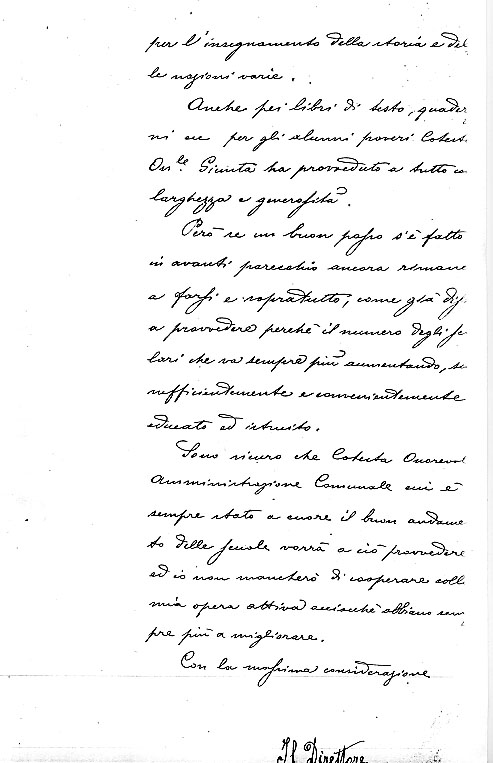 per l'insegnamento della storia e del
le nozioni varie.
Anche pei libri di testo, quader
ni ecc per gli alunni poveri Cotest.
On.le Giunta ha provveduto a tutto co
larghezza e generosità.
Però se un buon passo s'è fatto
in avanti parecchio ancora rimane
a farsi e sopratutto, come già dis
a provvedere perchè il numero degli sc
lari che va sempre più aumentando, si
sufficientemente e convenientemente
educato ed istruito.
Sono sicuro che Cotesta Onorevol
Amministrazione Comunale cui è
sempre stato a cuore il buon andame
to delle scuole vorrà a ciò provvedere
ed io non mancherò di cooperare coll
mia opera attiva acciochè abbiano sem
pre più a migliorare.
Con la massima considerazione
Il Direttore